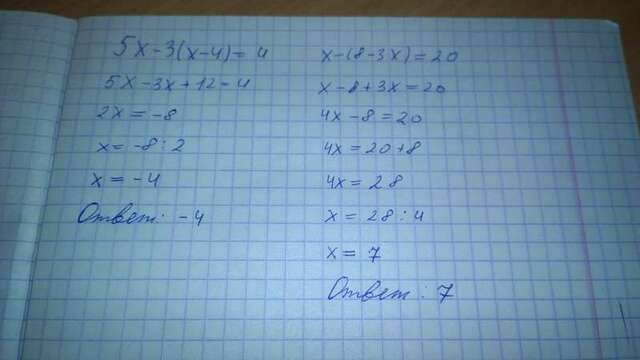 5x-3(x-4)=4
5x-3x+12=4
2x=-8
x=-8:2
x=-4
Ответ: -4
x-(8-3x)=20
x-8+3x=20
4x-8=20
4x=20+8
4x=28
x=28:4
x=7
Ответ: 7